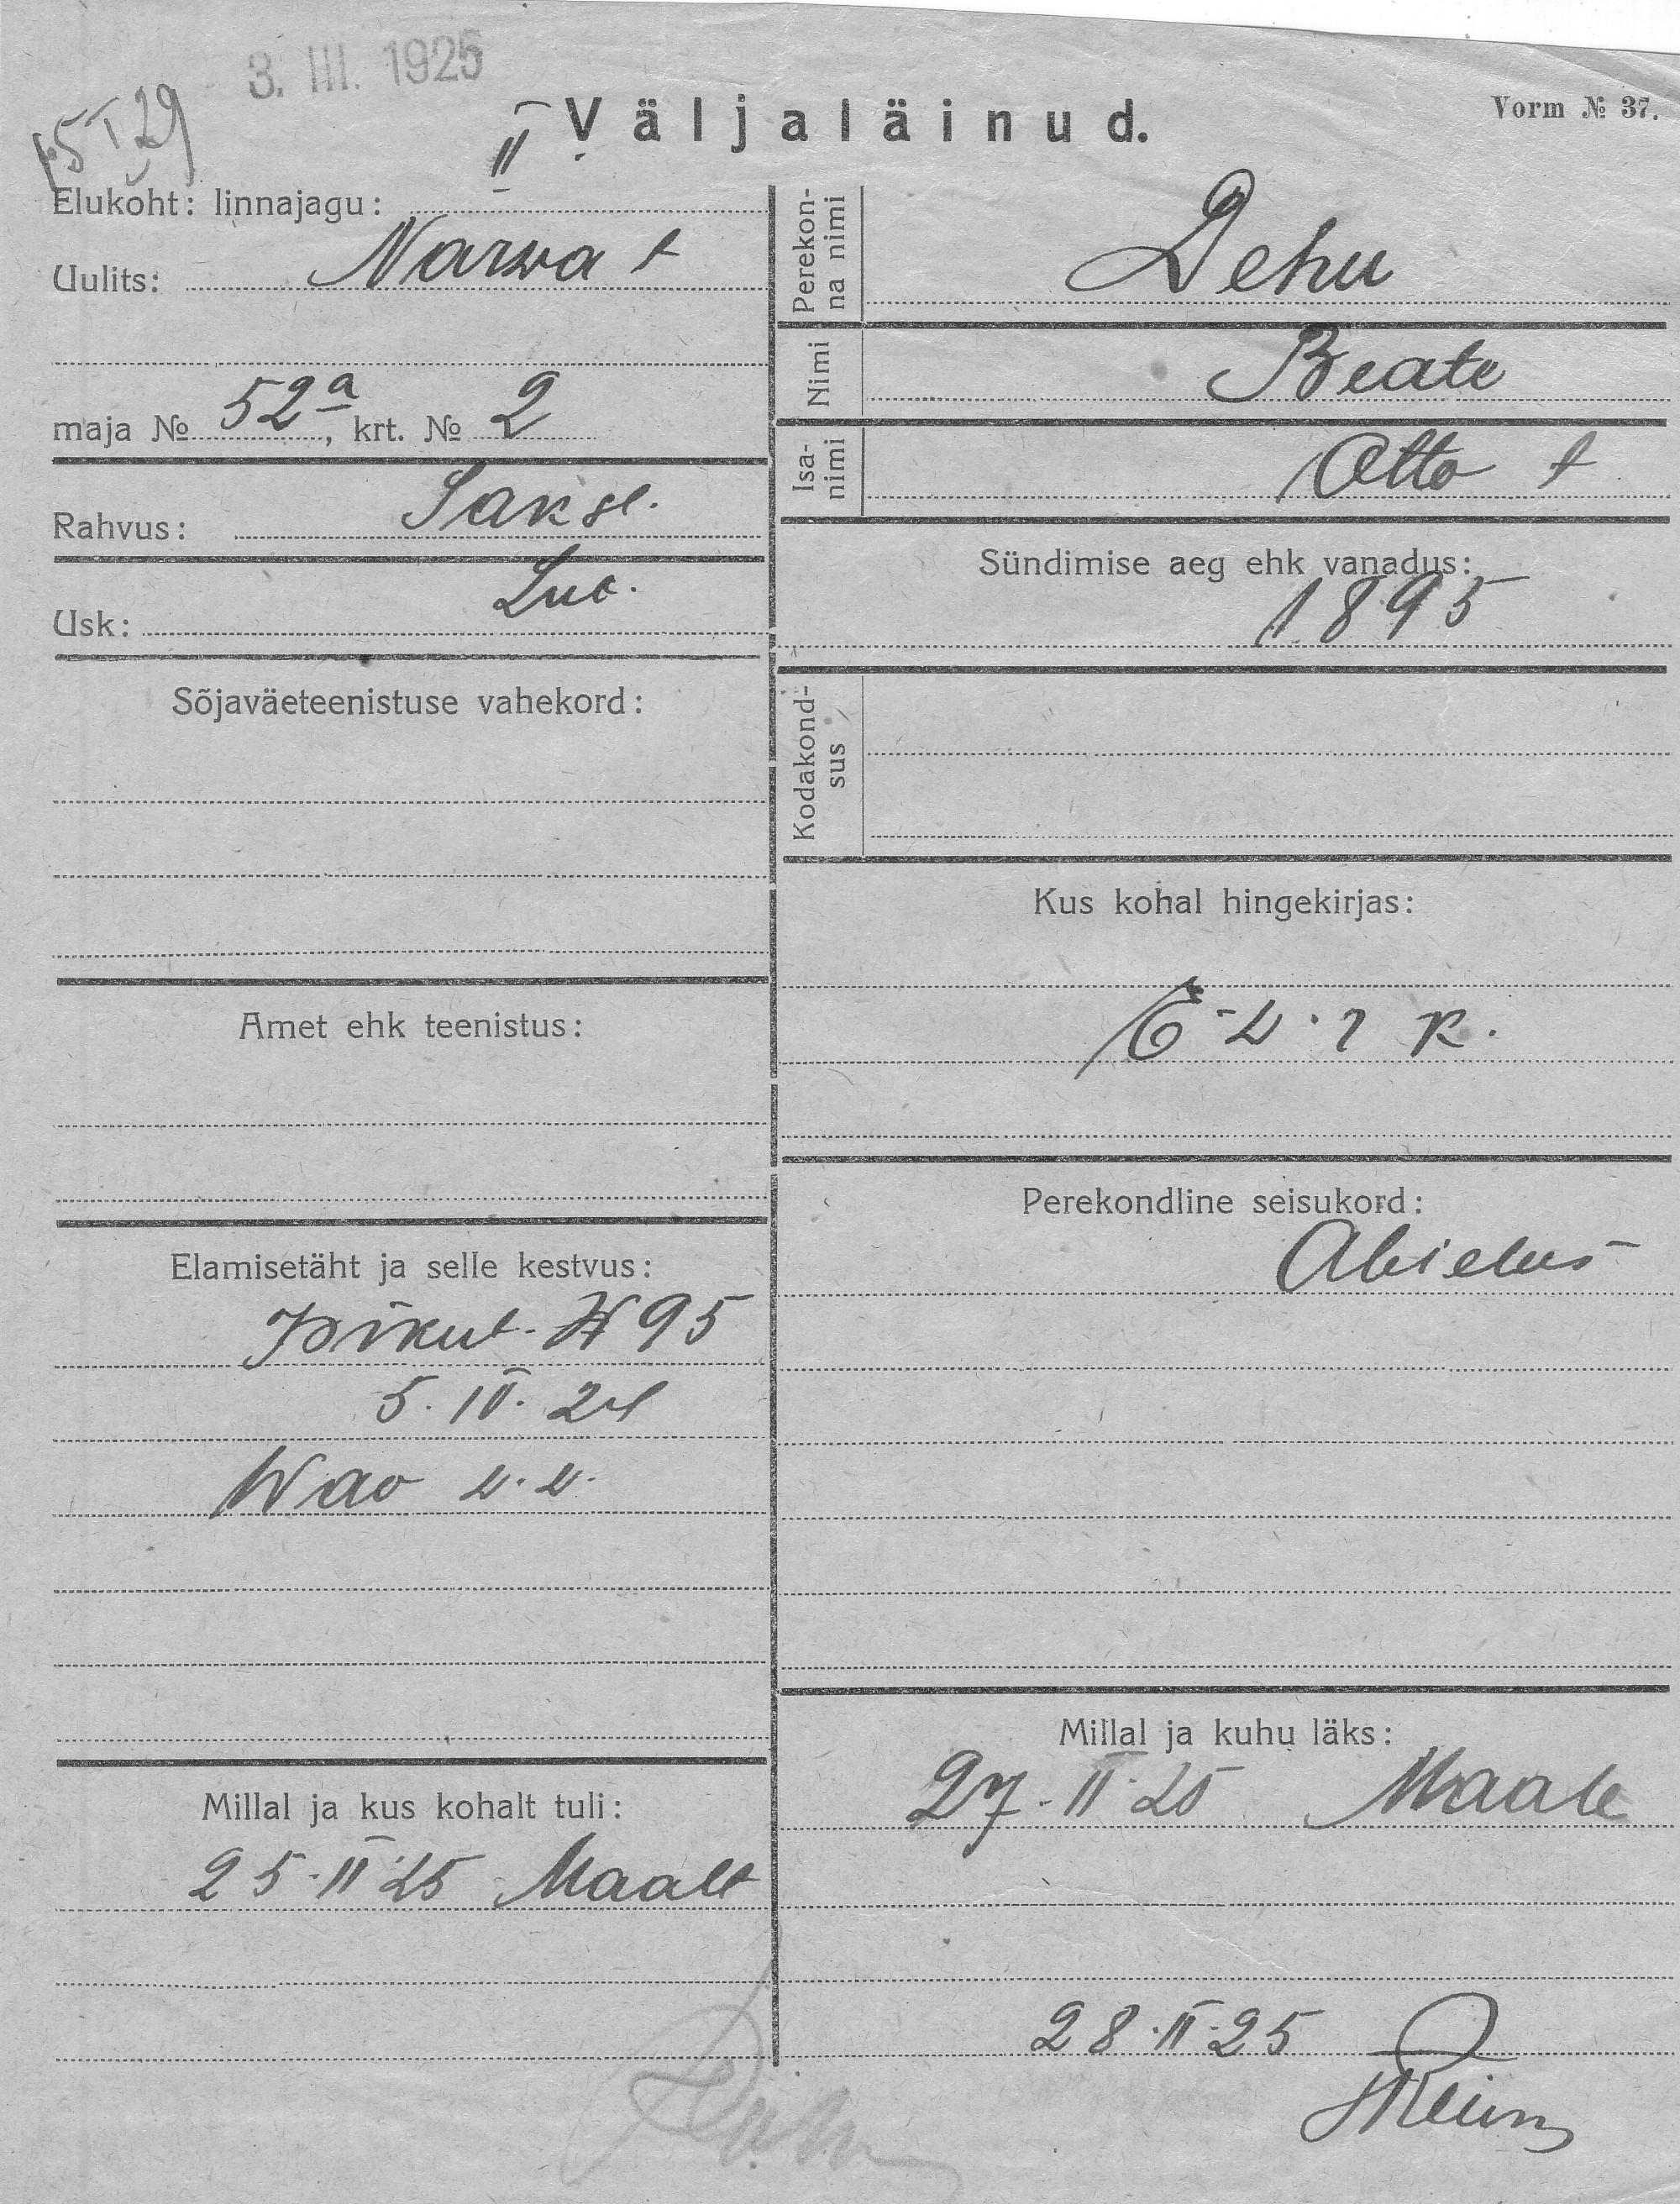 3. III. 1925
Väljaläinud.
Vorm № 37.
Elukoht: linnajagu: II
Uulits: Narwa t
maja № 52a, krt. № 2
Rahvus: Saksl.
Usk: Lut.
Sõjaväeteenistuse vahekord:
Amet ehk teenistus:
Elamisetäht ja selle kestvus:
Isikut. № 95
5. IV. 24
Wao v. v.
Millal ja kus kohalt tuli:
25·II·25 Maalt
Perekonna nimi Dehn
Nimi Beate
Isanimi Otto t
Sündimise aeg ehk vanadus:
1895
Kodakondsus
Kus kohal hingekirjas:
Perekondline seisukord:
Abielus
Millal ja kuhu läks:
27·II·25 Maale
28·II·25